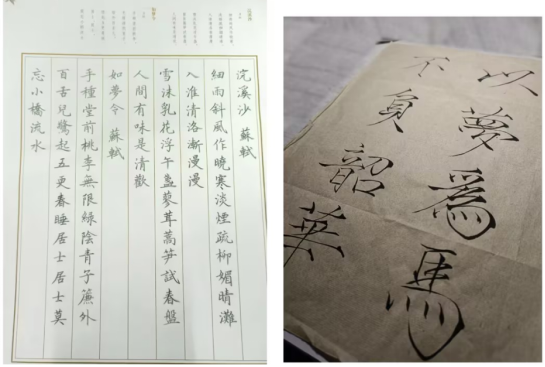 浣溪沙 蘇軾
細雨斜風作曉寒淡煙疏柳媚晴灘
入淮清洛漸漫漫
雪沫乳花浮午盞蓼茸蒿笋試春盤
人間有味是清歡
如夢令 蘇軾
手種堂前桃李無限綠陰青子簾外
百舌兒驚起五更春睡居士居士莫
忘小橋流水
以夢爲馬
不負韶華